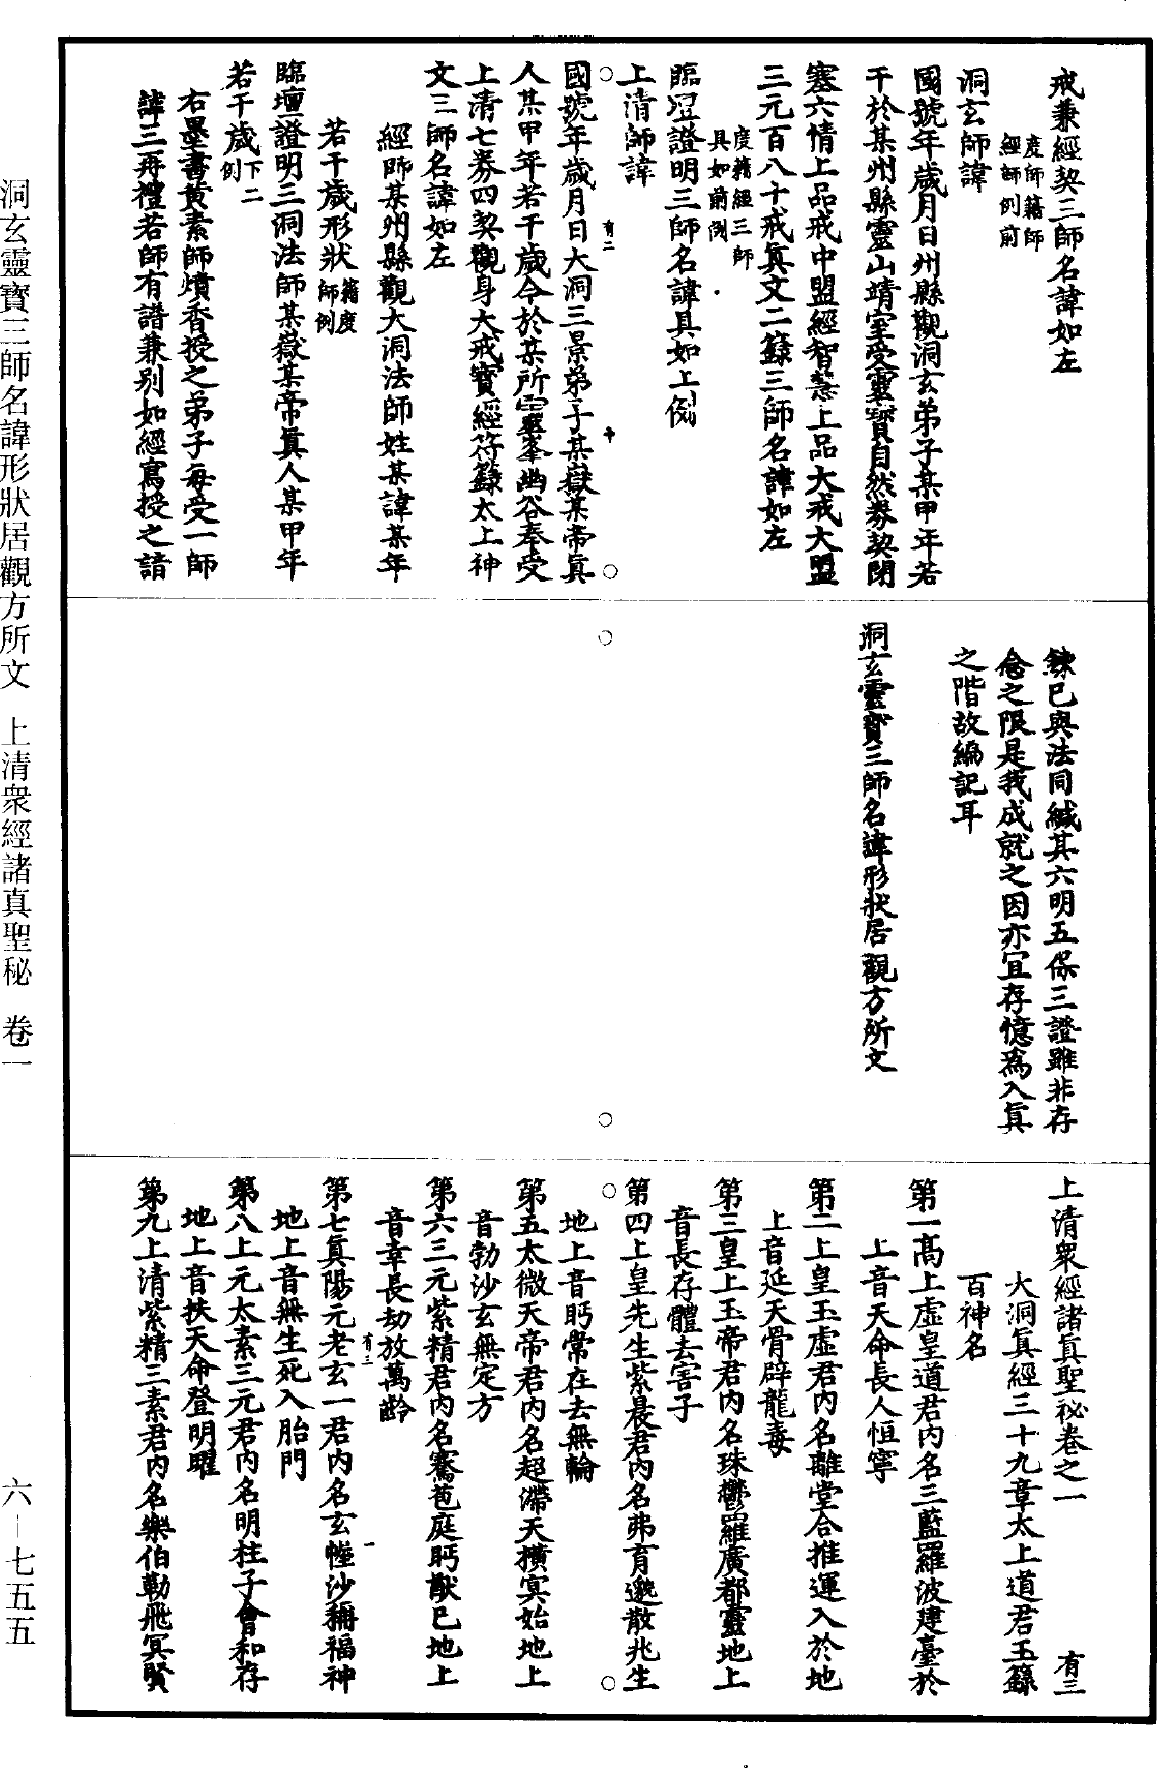 戒兼經契三師名諱如左
度師籍師
經師例前
洞玄師諱
國號年歲月日州縣觀洞玄弟子某甲年若
干於某州縣靈山靖室受靈寶自然券契閉
塞六情上品戒中盟經智慧上品大戒大盟
三元百八十戒眞文二籙三師名諱如左
度籍經三師
具如前例
臨壇證明三師名諱具如上例
上清師諱
有二
十
國號年歲月日大洞三景弟子某嶽某帝眞
人某甲年若干歲今於某所靈峯幽谷奉受
上清七券四契觀身大戒寶經符籙太上神
文三師名諱如左
經師某州縣觀大洞法師姓某諱某年
若干歲形狀籍度
師例
臨壇證明三洞法師某嶽某帝眞人某甲年
若干歲下二
例
右墨書黃素師燌香授之弟子每受一師
諱三再禮若師有譜兼別如經寫授之諳
錬巳與法同緘其六明五保三證雖非存
念之限是我成就之因亦宜存憶爲入眞
之階故編記耳
洞玄靈寶三師名諱形狀居觀方所文
上清衆經諸眞聖祕卷之一
有三
大洞眞經三十九章太上道君玉籙
百神名
第一高上虛皇道君內名三藍羅波建臺於
上音天命長人恒寧
第二上皇玉虛君內名離堂合推運入於地
上音延天骨辟龍毒
第三皇上玉帝君內名珠鬱羅廣都靈地上
音長存體去害子
第四上皇先生紫晨君內名弗育邈散兆生
地上音眄常在去無輪
第五太微天帝君內名超滯天擴寞始地上
音勃沙玄無定方
第六三元紫精君內名騫苞庭眄猷巳地上
音韋長劫放萬齡
有三
一
第七眞陽元老玄一君內名玄幢沙穪福神
地上音無生死入胎門
第八上元太素三元君內名明柱子會和存
地上音扶天命登明曜
第九上清紫精三素君內名樂伯勒飛冥賢
洞玄靈寶三師名諱形狀居觀方所文　上清衆經諸真聖秘　卷一
六－七五五